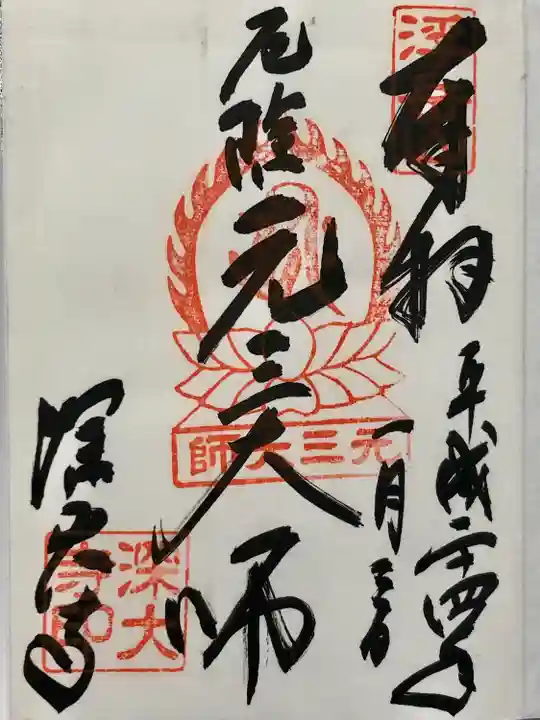 奉拝
平成二十四年
一月三日
厄除元三大師
深大寺
元三大師
深大寺印